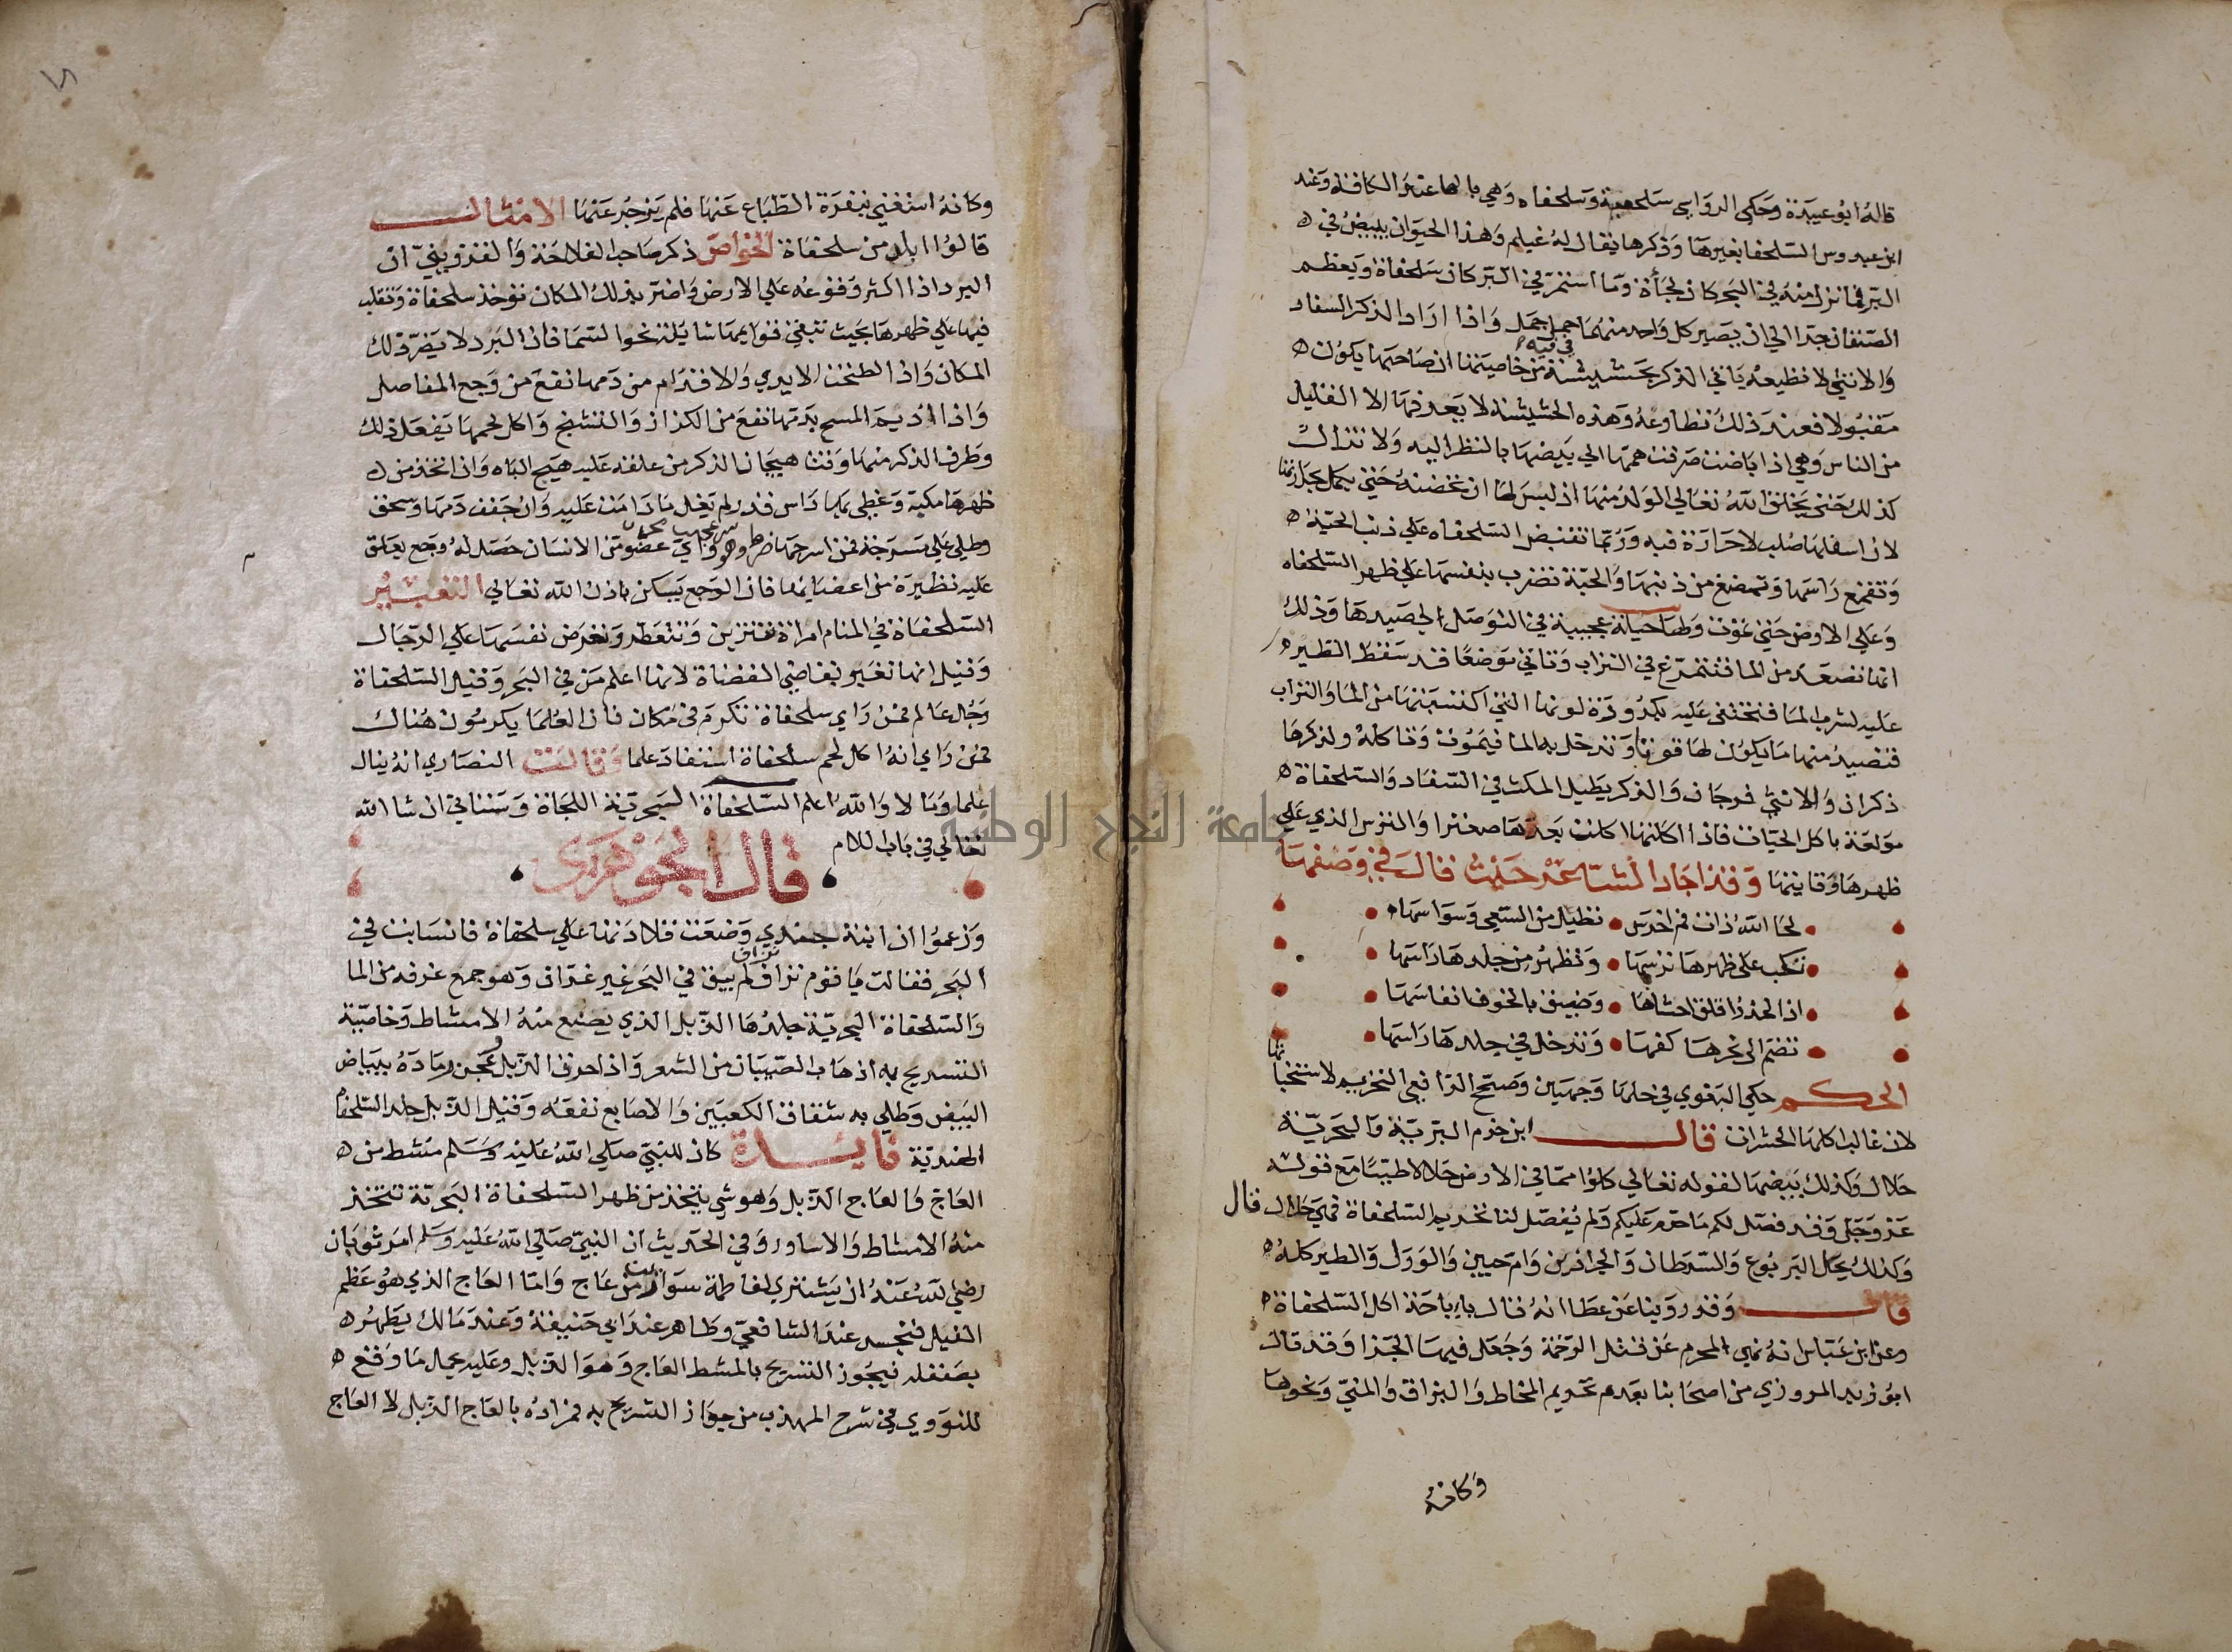 قاله ابو عبيدة وحكى الرواسي سلحفية وسلحفاه وهي بالها عند الكافة وعند
ابن عبدوس السلحفا بغيرها وذكرها يقال له غيلم وهذا الحيوان يبيض في
البر فما نزل منه في البحر كان لجأة وما استمر في البر كان سلحفاة ويعظم
الصنفان جدا الي ان يصير كل واحد منهما حمل جمل واذا اراد الذكر السفاد
والانثي لا تطيعه ياتي الذكر بحشيشة في فيه من خاصيتها ان صاحبها يكون
مقبولا فعند ذلك تطاوعه وهذه الحشيشة لا يعرفها الا القليل
من الناس وهي اذا باضت صرفت همتها الي بيضها بالنظر اليه ولا تزال
كذلك حتى يخلق الله تعالي الولد منها اذ ليس لها ان تحضنه حتي يكمل بحرارتها
لان اسفلها صلب لا حرارة فيه وربما تقبض السلحفاه علي ذنب الحية
وتقطع راسها وتمضغ من ذنبها والحية تضرب بنفسها علي ظهر السلحفاه
وعلي الارض حتي تموت ولها حيلة عجيبة في التوصل الي صيدها وذلك
انها تصعد من الما فتتمرغ في التراب وتاتي موضعا قد سقط الطير
عليه لشرب الما فتختفي عليه بكدورة لونها التي اكتسبتها من الما والتراب
فتصيد منها ما يكون لها قوتا وتدخل به الما فيموت وتاكله ولذكرها
ذكران وللانثي فرجان والذكر يطيل المكث في السفاد والسلحفاة
مولعة باكل الحيات فاذا اكلتها اكلت بعدها صعترا والترس الذي علي
ظهرها وقايتها وقد اجاد الشاعر حيث قال في وصفها
لحا الله ذات فم اخرس • تطيل من السعي وسواسها
تكب على ظهرها ترسها • وتظهر من جلدها راسها
اذا الحذر اقلق احشاها • وضيق بالخوف انفاسها
تضم الى نحرها كفها • وتدخل في جلدها راسها
الحكم حكي البغوي في حلها وجهين وصحح الرافعي التحريم لاستخباثها
لان غالب اكلها الحشرات قال ابن حزم البرية والبحرية
حلال وكذلك بيضها لقوله تعالي كلوا مما في الارض حلالا طيبا مع قوله
عز وجل وقد فصل لكم ما حرم عليكم ولم يفصل لنا تحريم السلحفاة فهي حلال قال
وكذلك يحل اليربوع والسرطان والجراذين وام حبين والورل والطير كله
قال وقد روينا عن عطا انه قال باباحة اكل السلحفاة
وعن ابن عباس انه نهي المحرم عن قتل الرخمة وجعل فيها الجزا وقد قال
ابو زيد المروزي من اصحابنا بعدم تحريم المخاط والبزاق والمني ونحوها
وكانه
وكانه استغني بنفرة الطباع عنها فلم يزجر عنها الامثال
قالوا ابلد من سلحفاة الخواص ذكر صاحب الفلاحة والقزويني ان
البرد اذا اكثر وقوعه علي الارض واضر بذلك المكان توخذ سلحفاة وتقلب
فيها علي ظهرها بحيث تبقي قوايمها شايلة نحو السما فان البرد لا يضر ذلك
المكان واذا لطخت الايدي والاقدام من دمها نفع من وجع المفاصل
واذا اديم المسح بدمها نفع من الكزاز والتشنج واكل لحمها يفعل ذلك
وطرف الذكر منها وقت هيجان الذكر من علقه عليه هيج الباه وان اتخذ من
ظهرها مكبة وغطي بها راس قدر لم تغل ما دامت عليه وان جفف دمها وسحق
وطلي علي مسرجة فمن اسرجها ضرط وهو سر عجيب مجرب واي عضو من الانسان حصل له وجع يعلق
عليه نظيره من اعضايها فان الوجع يسكن باذن الله تعالي التعبير
السلحفاة في المنام امراة تتزين وتتعطر وتعرض نفسها علي الرجال
وقيل انها تعبر بقاضي القضاة لانها اعلم من في البحر وقيل السلحفاة
رجل عالم فمن راي سلحفاة تكرم في مكان فان العلما يكرمون هناك
فمن راي انه اكل لحم سلحفاة استفاد علما وقالت النصاري انه ينال
علما ومالا والله اعلم السلحفاة البحرية اللجاة وستاتي ان شا الله
تعالي في باب اللام قال الجوهري
وزعموا ان ابنة جندي وضعت قلادتها علي سلحفاة فانسابت في
البحر فقالت يا قوم نزاف نزاف لم يبق في البحر غير غراف وهو جمع غرفة من الما
والسلحفاة البحرية جلدها الذبل الذي يصنع منه الامشاط وخاصية
التسريح به اذهاب الصيبان من الشعر واذا احرق الذبل وعجن رماده ببياض
البيض وطلي به شقاق الكعبين والاصابع نفعه وقيل الذبل جلد السلحفاة
الهندية فايدة كان للنبي صلي الله عليه وسلم مشط من
العاج والعاج الذبل وهو شي يتخذ من ظهر السلحفاة البحرية تتخذ
منه الامشاط والاساور وفي الحديث ان النبي صلي الله عليه وسلم امر ثوبان
رضي الله عنه ان يشتري لفاطمة سوارين من عاج واما العاج الذي هو عظم
الفيل فنجس عند الشافعي وطاهر عند ابي حنيفة وعند مالك يطهر
بصقله فيجوز التسريح بالمشط العاج وهو الذبل وعليه يحمل ما وقع
للنووي في شرح المهذب من جواز التسريح به فمراده بالعاج الذبل لا العاج
جامعة النجاح الوطنية